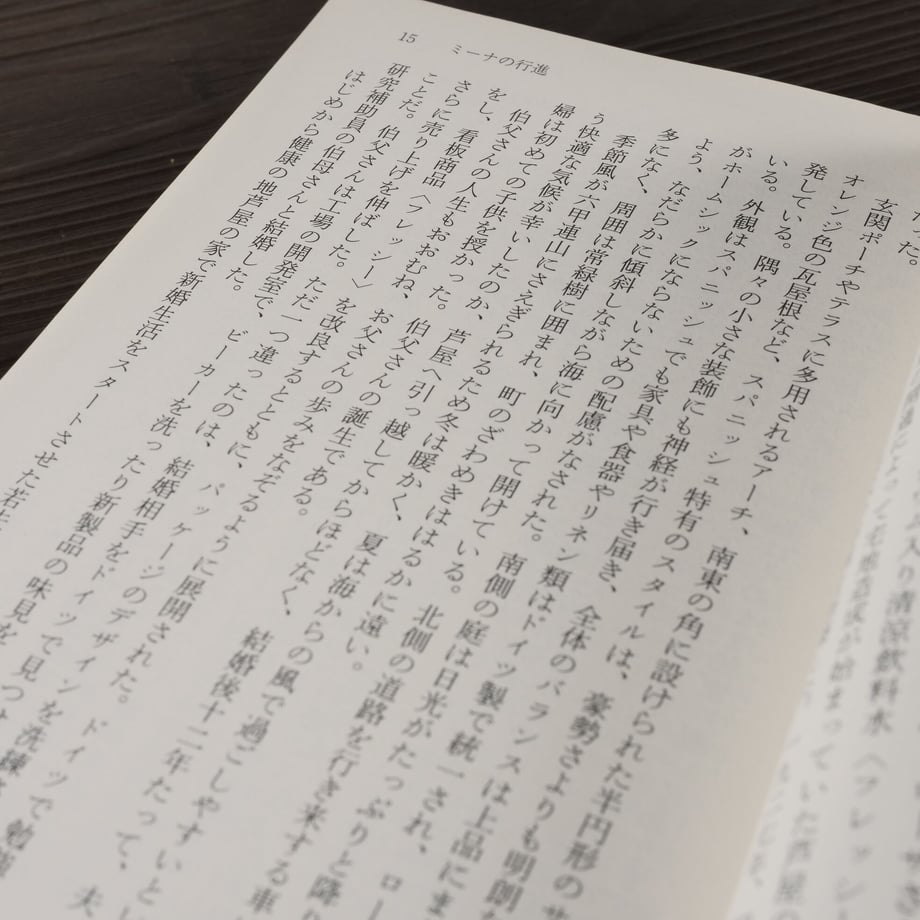 入り清涼飲料水〈フレッシ
が始まっていた芦屋
った。
玄関ポーチやテラスに多用されるアーチ、南東の角に設けられた半円形のサ
オレンジ色の瓦屋根など、スパニッシュ特有のスタイルは、豪勢さよりも明朗な
発している。隅々の小さな装飾にも神経が行き届き、全体のバランスは上品にま
いる。外観はスパニッシュでも家具や食器やリネン類はドイツ製で統一され、ロー
がホームシックにならないための配慮がなされた。南側の庭は日光がたっぷりと降り
よう、なだらかに傾斜しながら海に向かって開けている。北側の道路を行き来する車
多になく、周囲は常緑樹に囲まれ、町のざわめきははるかに遠い。
季節風が六甲連山にさえぎられるため冬は暖かく、夏は海からの風で過ごしやすいとい
う快適な気候が幸いしたのか、芦屋へ引っ越してからほどなく、結婚後十二年たって、夫
婦は初めての子供を授かった。伯父さんの誕生である。
伯父さんの人生もおおむね、お父さんの歩みをなぞるように展開された。ドイツで勉強
をし、看板商品〈フレッシー〉を改良するとともに、パッケージのデザインを洗練
さらに売り上げを伸ばした。ただ一つ違ったのは、結婚相手をドイツで見つけ
ことだ。伯父さんは工場の開発室で、ビーカーを洗ったり新製品の味見を
研究補助員の伯母さんと結婚した。
はじめから健康の地芦屋の家で新婚生活をスタートさせた若
15 ミーナの行進